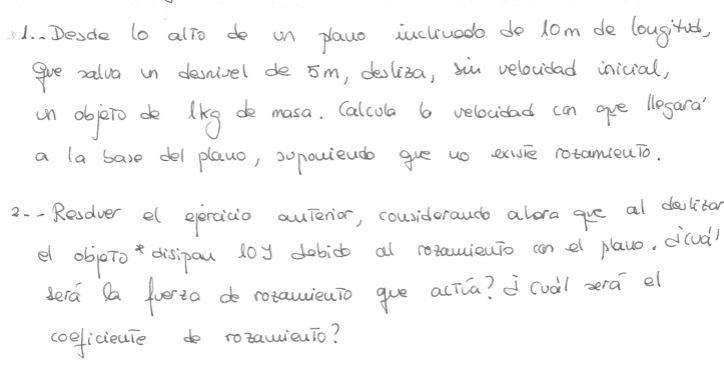 1.- Desde lo alto de un plano inclinado de 10m de longitud,
que salva un desnivel de 5m, desliza, sin velocidad inicial,
un objeto de 1kg de masa. Calcula la velocidad con que llegará
a la base del plano, suponiendo que no existe rozamiento.
2.- Resolver el ejercicio anterior, considerando ahora que al deslizar
el objeto * disipan 10J debido al rozamiento con el plano. ¿cuál
será la fuerza de rozamiento que actúa? ¿cuál será el
coeficiente de rozamiento?